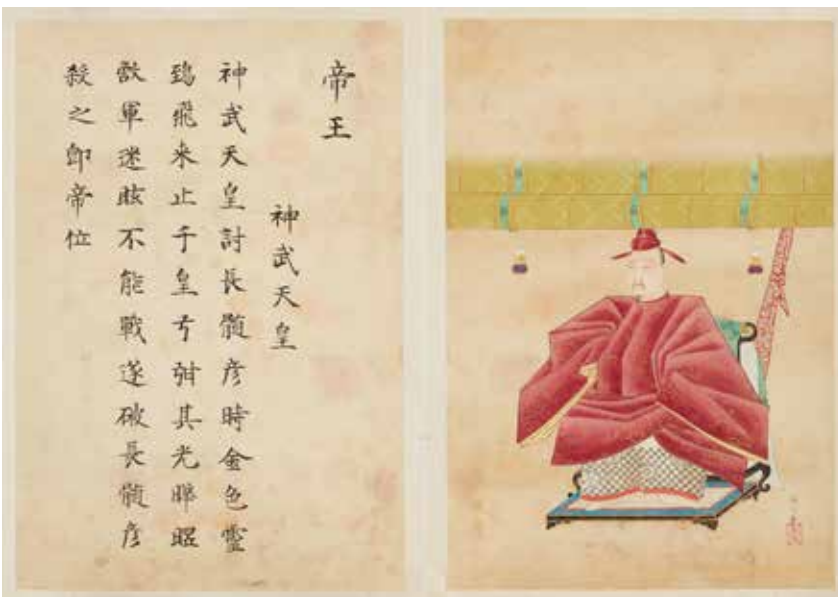 帝王
神武天皇
神武天皇討長髄彦時金色霊
鵄飛来止于皇弓弭其光曄昭
敵軍迷眩不能戰遂破長髄彦
殺之即帝位